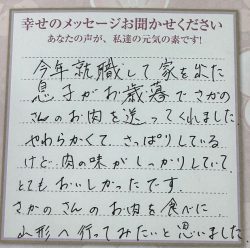 幸せのメッセージお聞かせください
あなたの声が、私達の元気の素です!
今年就職して家を出た
息子がお歳暮でさかの
さんのお肉を送ってくれました
やわらかくて、さっぱりしている
けど、肉の味がしっかりしていて、
とてもおいしかったです。
さかのさんのお肉を食べに、
山形へ行ってみたいと思いました